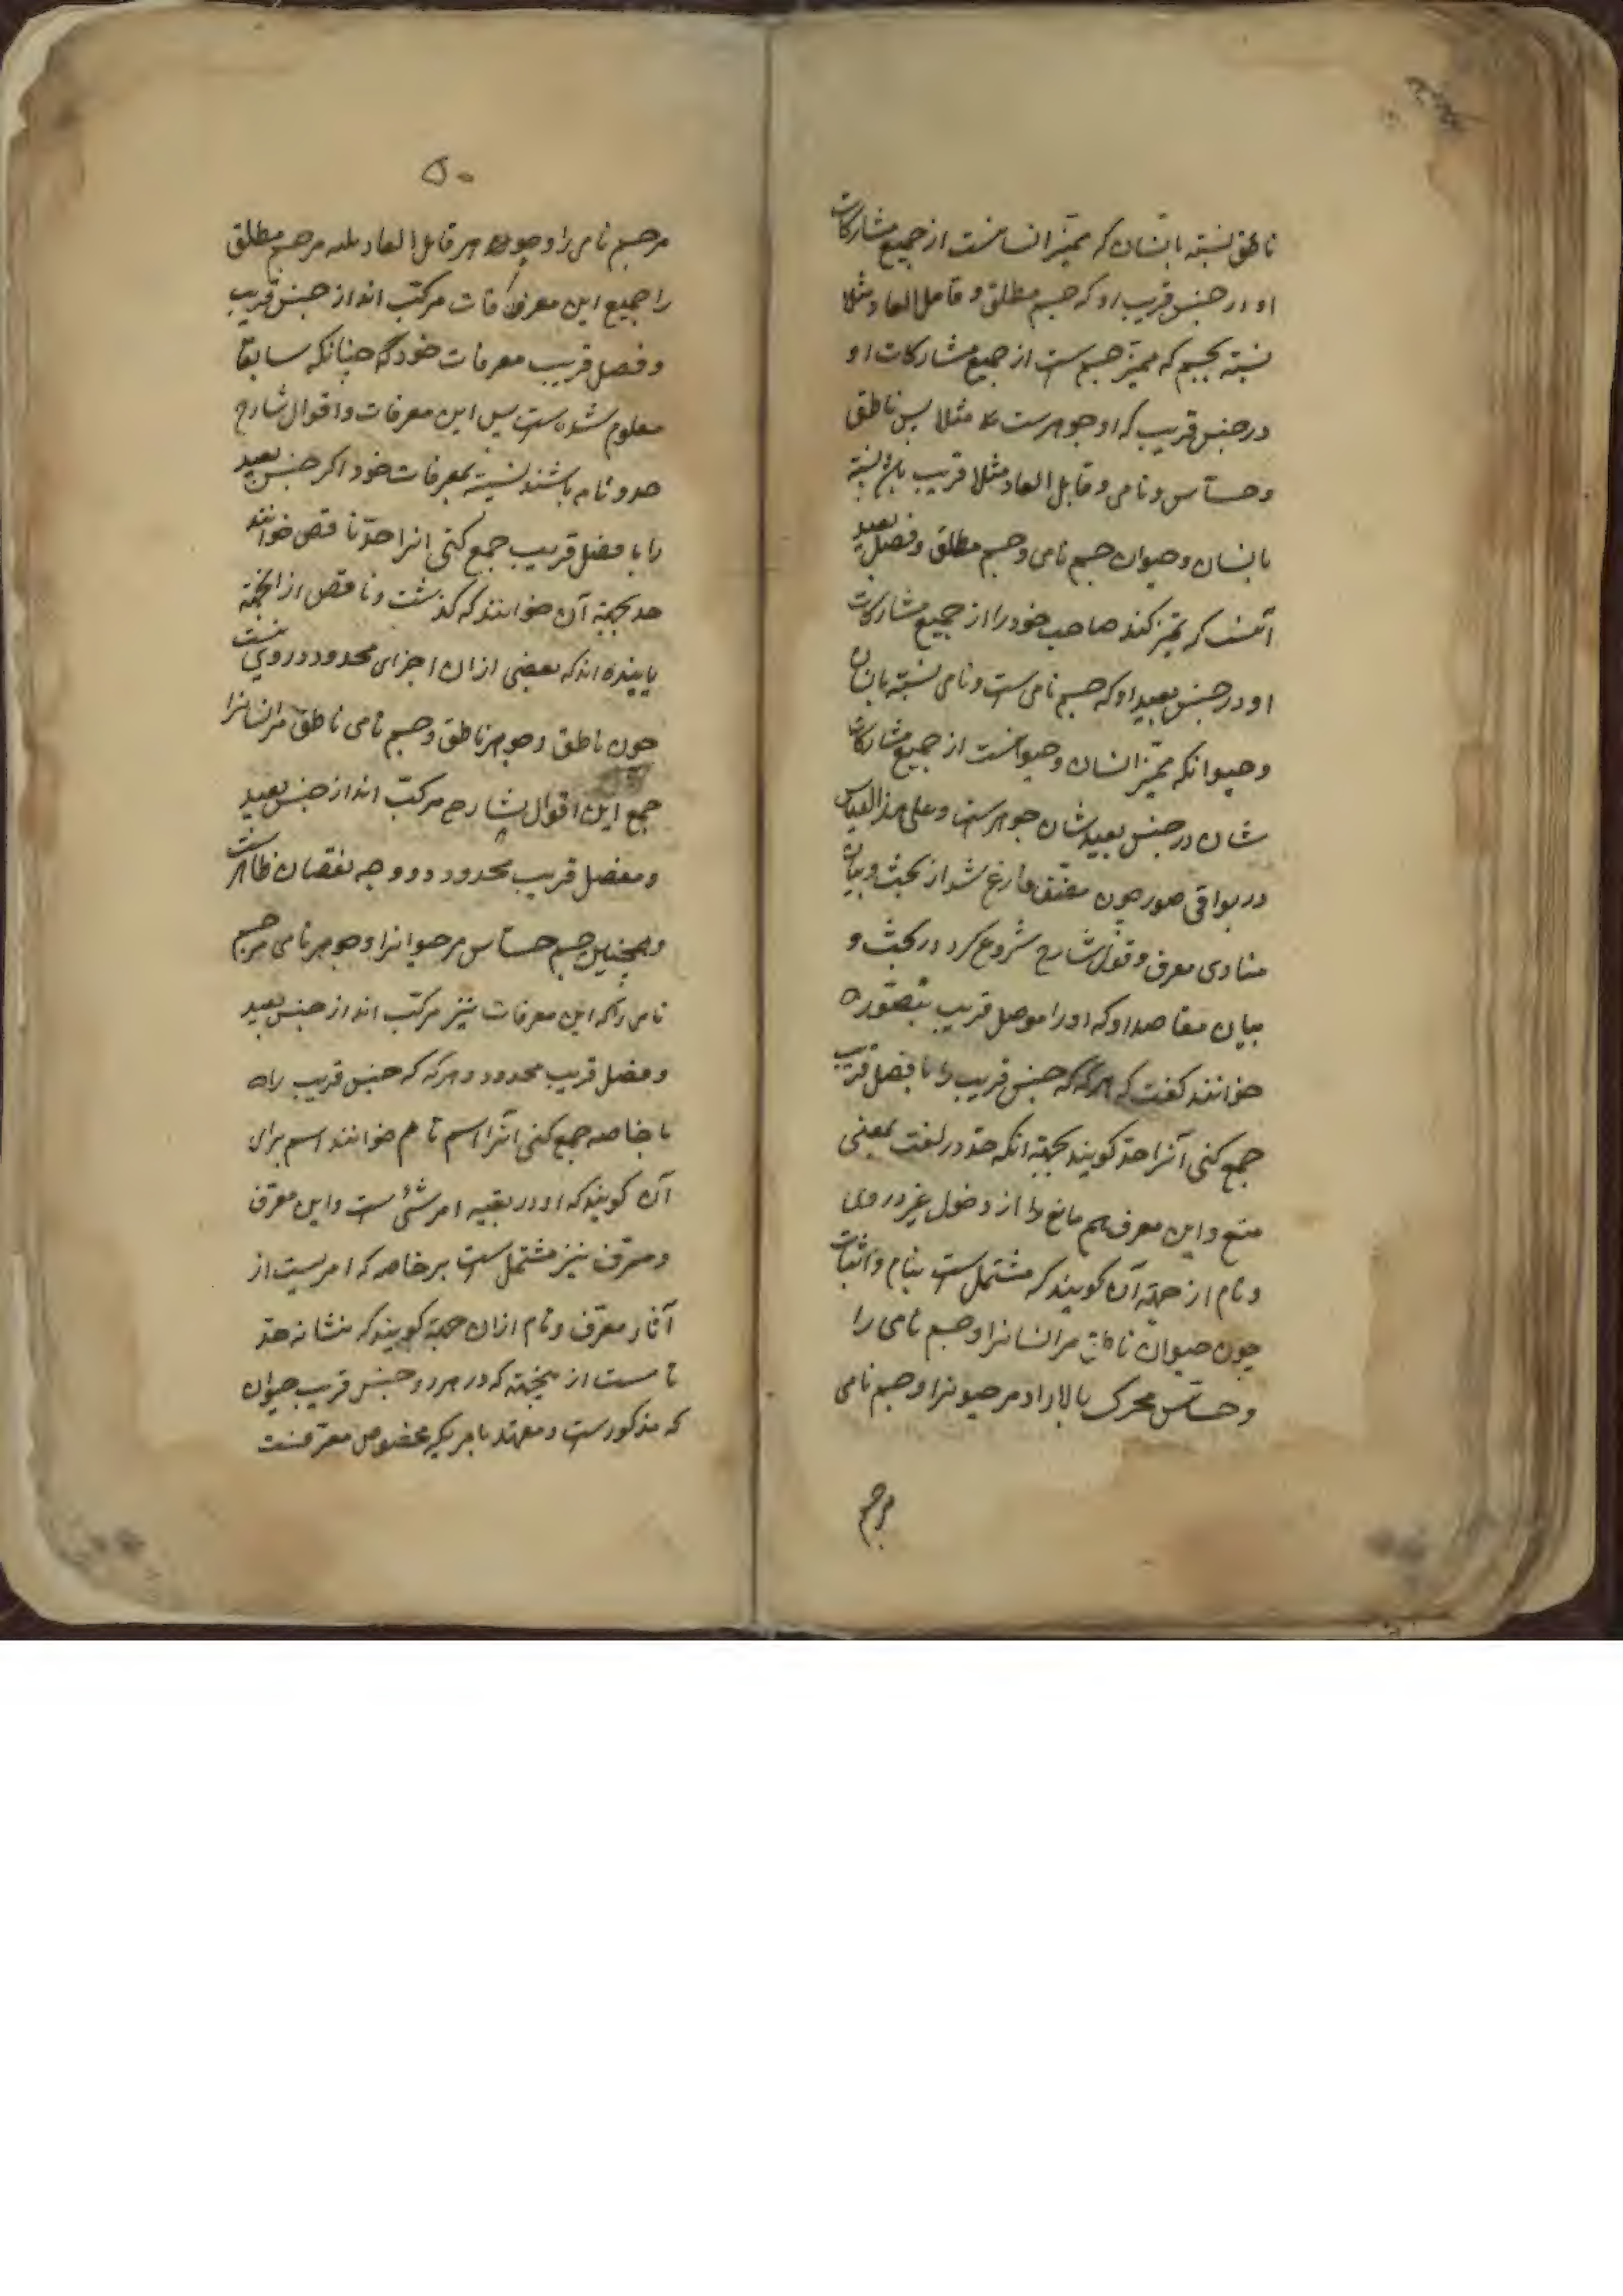 ناطق نسبته بانسان که ممیز انسانست از جمیع مشارکات
او در جنس قریب او که جسم مطلق و قابل ابعاد مثلا
نسبته بجسم که ممیز جسم است از جمیع مشارکات او
در جنس قریب که او جوهرست مثلا پس ناطق
و حساس و نامی و قابل ابعاد مثلا قریب نسبته
بانسان و حیوان جسم نامی و جسم مطلق و فصل بعید
آنست که تمیز کند صاحب خود را از جمیع مشارکات
او در جنس بعید او که جسم نامی است و نامی نسبته بانسان
و حیوانکه ممیز انسان و حیوانست از جمیع مشارکات
شان در جنس بعید شان جوهرست و علی هذا القیاس
در بواقی صور چون مصنف فارغ شد از بحث و بیان
مبادی معرف و قول شارح شروع کرد در بحث و
بیان مقاصد او که او را موصل قریب بتصوره
خوانند گفت که هرگه که جنس قریب را با فصل قریب
جمع کنی آنرا حد گویند بجهته انکه حد در لغت بمعنی
منع و این معرف هم مانع را از دخول غیر در وی
و تام از جهته آن گویند که مشتمل ست بتمام ذاتیات
چون حیوان ناطق مر انسانرا و جسم نامی را
و حساس محرک بالاراد مر حیونرا و جسم نامی
مرجسم
۵۰
مر جسم نامی را و جوهر قابل ابعاد مر جسم مطلق
را جمیع این معرفات مرکب اند از جنس قریب
و فصل قریب معرفات خود که چنانکه سابقا
معلوم شده ست پس این معرفات و اقوال شارح
حدو تام باشند نسبته بمعرفات خود اگر جنس بعید
را با فصل قریب جمع کنی انرا حد ناقص خوانند
حد بجهته آن خوانند که گذشت و ناقص از انجهته
که بعضی ازان اجزای محدود در وی نیست
چون ناطق و جوهر ناطق و جسم نامی ناطق مر انسانرا
جمع این اقوال شارح مرکب اند از جنس بعید
و فصل قریب محدود و وجه نقصان ظاهرست
و همچنین جسم حساس مر حیوانرا و جوهر نامی مر جسم
نامی را که این معرفات نیز مرکب اند از جنس بعید
و فصل قریب محدود و هرگه که جنس قریب راه
با خاصه جمع کنی آنرا اسم تام خوانند اسم برای
آن گویند که او در بقیه امر شئ ست و این معرف
و معرف نیز مشتمل ست بر خاصه که امریست از
آثار معرف و تام ازان جهته گویند که مشابه حد
تامست از نجهته که در هر دو جنس قریب حیوان
که مذکورست و مقید بامریکه مخصوص معرفست